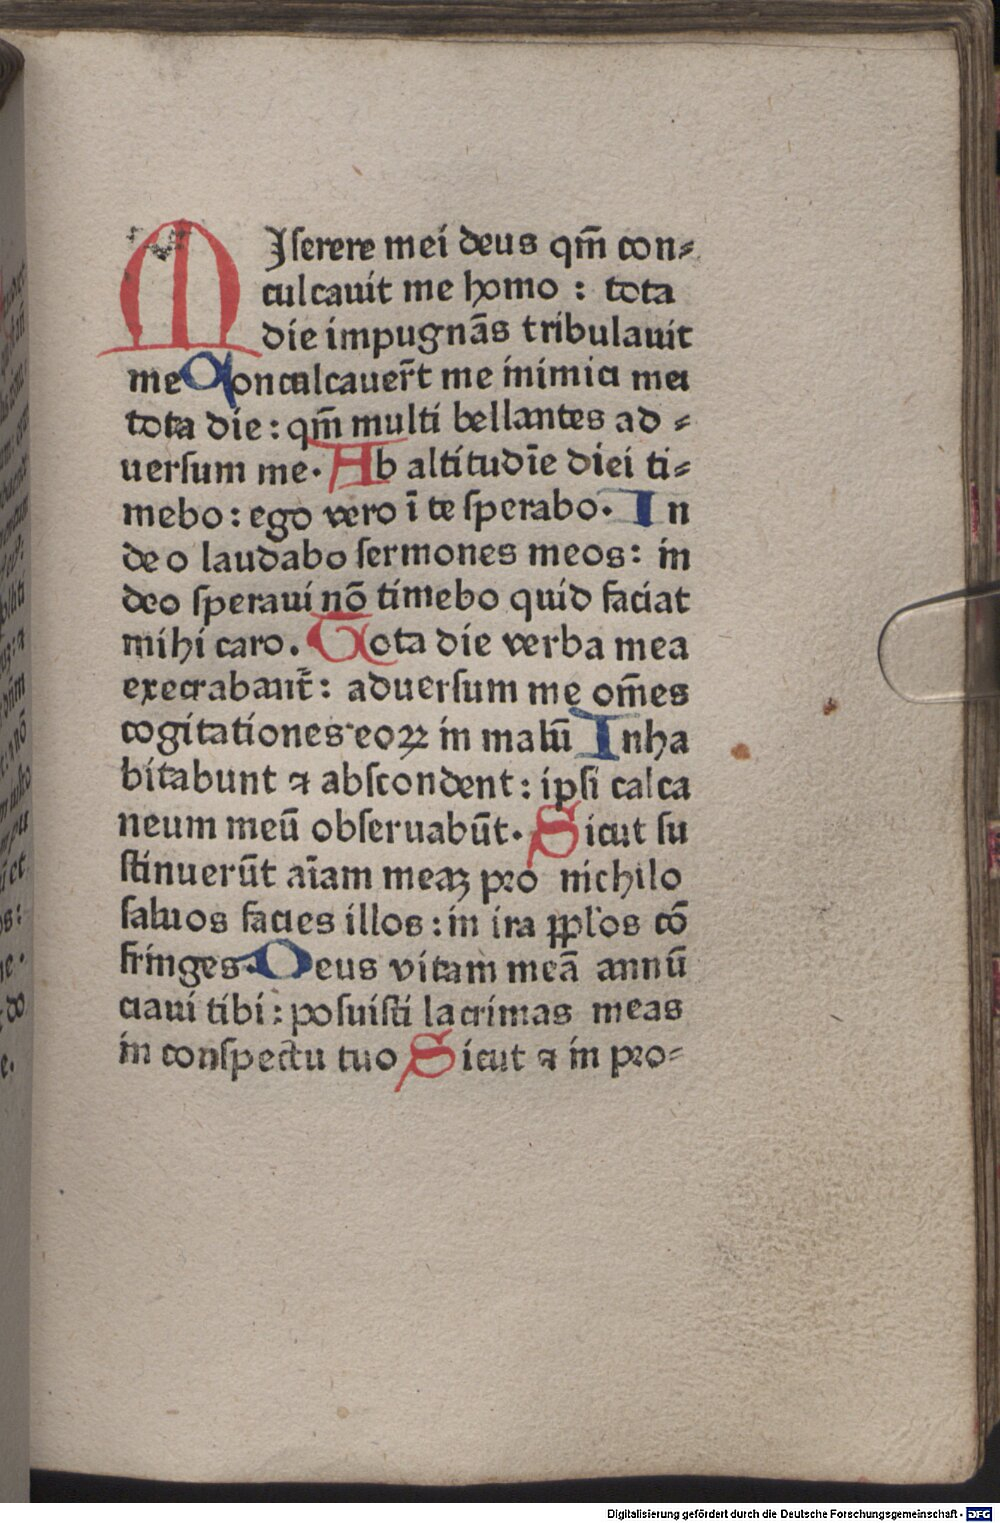 MIserere mei deus qm̄ con⸗
culcauit me homo : tota
die impugnās tribulauit
me Conculcauer̄t me inimici mei
tota die : qm̄ multi bellantes ad ⸗
uersum me. Ab altitudīe diei ti⸗
mebo : ego vero ī te sperabo. In
deo laudabo sermones meos : in
deo speraui nō timebo quid faciat
mihi caro. Tota die verba mea
execrabant̄ : aduersum me om̄es
cogitationes eoꝝ in malū Inha
bitabunt ⁊ abscondent : ipsi calca
neum meū obseruabūt. Sicut su
stinuerūt aīam meaꝫ pro nichilo
saluos facies illos : in ira ppl'os cō
fringes. Deus vitam meā annū
ciaui tibi : posuisti lacrimas meas
in conspectu tuo Sicut ⁊ in pro⸗
Digitalisierung gefördert durch die Deutsche Forschungsgemeinschaft - DFG